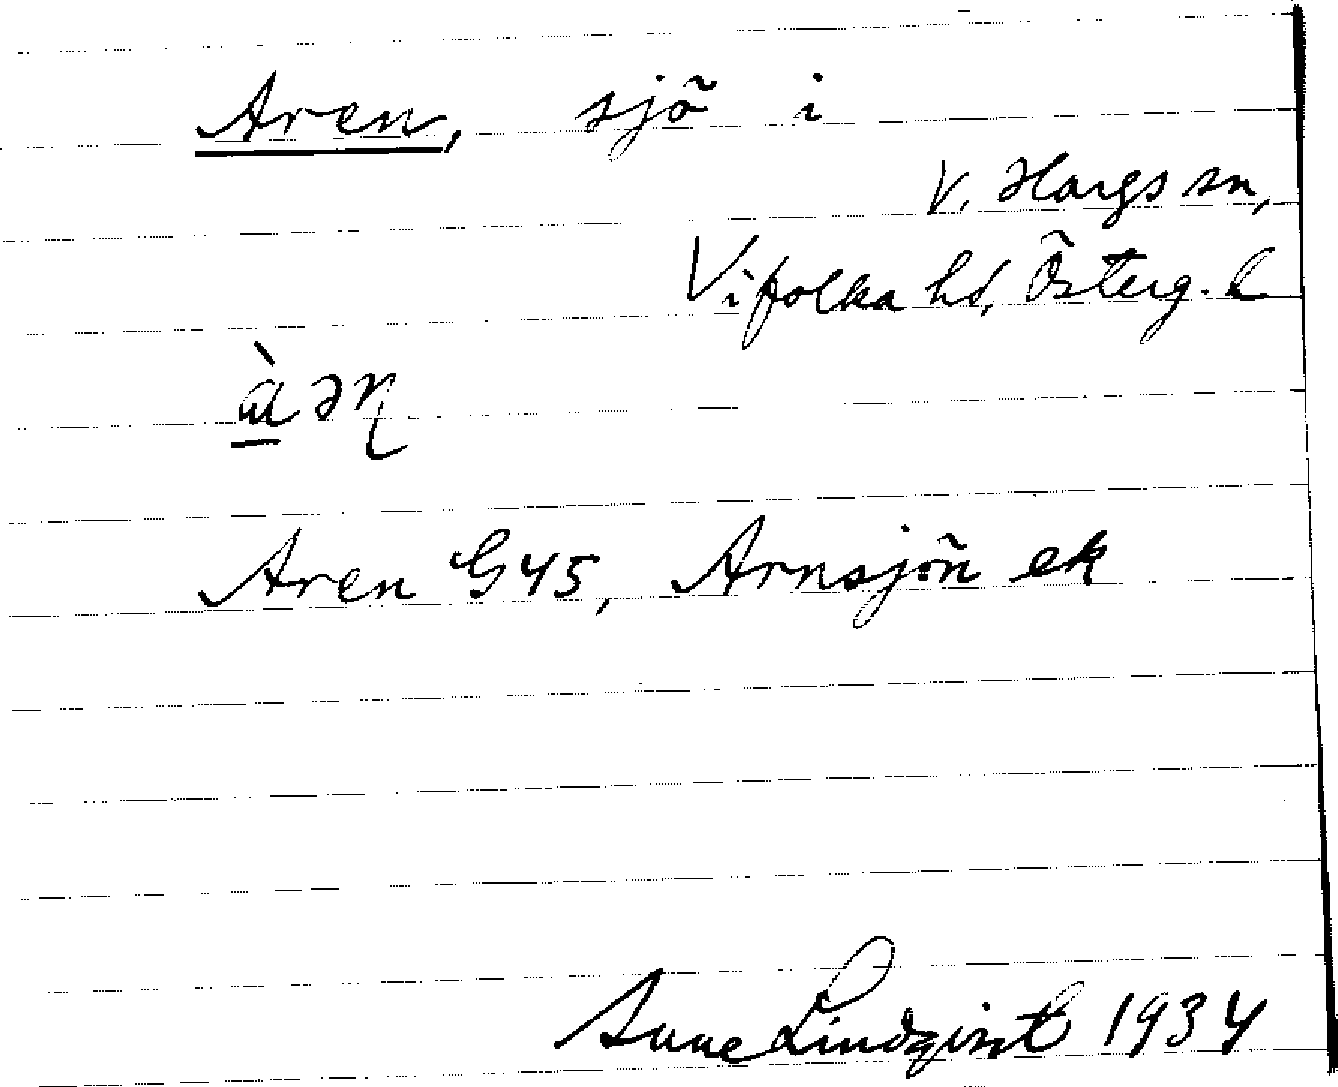 Aren, sjö i
V. Hargs sn,
Vifolka hd, Österg. l
Aren G45, Arnsjön ek
Sune Lindqvist 1934